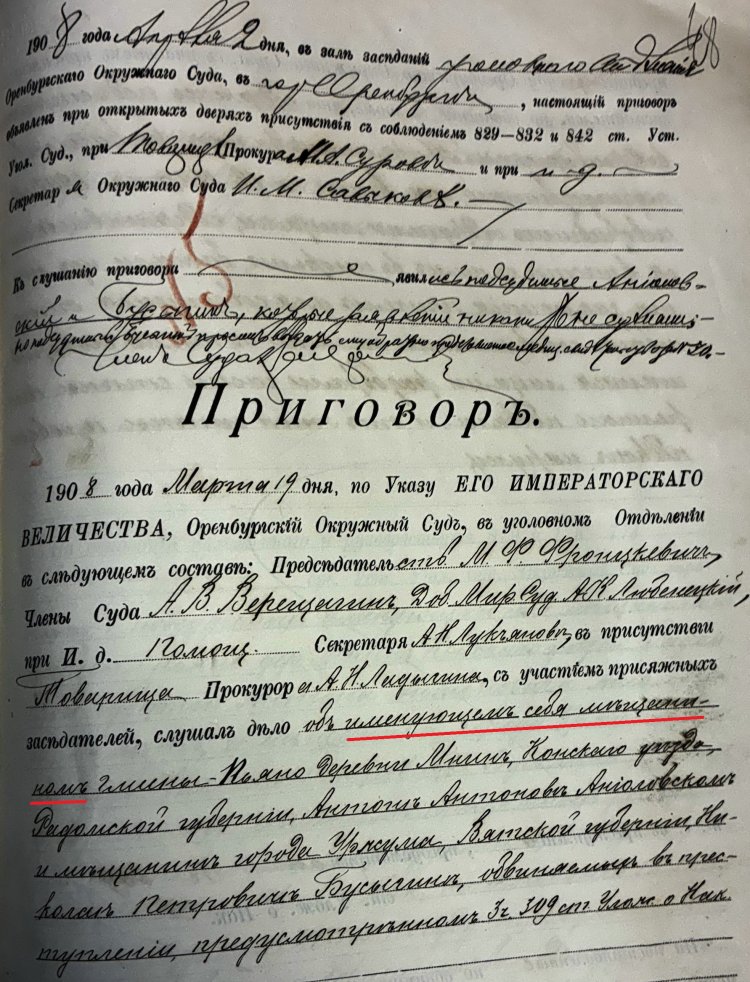 1908 года Апрѣля 2 дня, въ залѣ засѣданій уголовнаго отдѣленія
Оренбургскаго Окружнаго Суда, въ гор. Оренбургѣ, настоящій приговоръ
объявленъ при открытыхъ дверяхъ присутствія съ соблюденіемъ 829—832 и 842 ст. Уст.
Угол. Суд., при Товарищѣ Прокурора А. Суровъ и при и. д.
Секретаря Окружнаго Суда И. М. Савыковѣ.
Къ слушанію приговора явились подсудимые Аніолов-
скій и Бусыгинъ, никакихъ не
Члены Суда
Приговоръ.
1908 года Марта 19 дня, по Указу ЕГО ИМПЕРАТОРСКАГО
ВЕЛИЧЕСТВА, Оренбургскій Окружный Судъ, въ уголовномъ Отдѣленіи
въ слѣдующемъ составѣ: Предсѣдательств. М. Ф. Фроцкевичъ,
Члены Суда А. В. Верещагинъ, Доб. Мир Суд А. К. Любенецкій,
при И. д. Помощ. Секретаря А Н Лукьяновѣ, въ присутствіи
Товарища Прокурора А. Н. Ладыгина, съ участіемъ присяжныхъ
засѣдателей, слушалъ дѣло объ именующемъ себя мѣщани-
номъ гмины-Пьяно деревни Мнинъ, Конскаго уѣзда,
Радомской губерніи, Антонѣ Антоновѣ Аніоловскомъ
и мѣщанинѣ города Уржума, Вятской губерніи, Ни-
колаѣ Петровичѣ Бусыгинѣ, обвиняемыхъ въ прес-
тупленіи, предусмотрѣнномъ 3 ч. 309 ст Улож. о Нак.